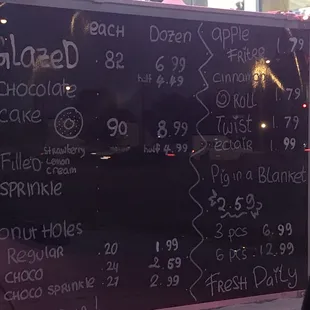 each Dozen
Glazed .82 6.99
half 4.49
Chocolate
Cake 90 8.99
half 4.99
Filled Strawberry
Lemon
Cream
Sprinkle
Donut Holes
Regular .20 1.99
Choco .24 2.59
Choco Sprinkle .27 2.99
apple 1.79
Fritter
cinnamon
Roll 1.79
Twist 1.79
eclair 1.99
Pig in a Blanket
$2.59
3 pcs 6.99
6 pcs 12.99
Fresh Daily